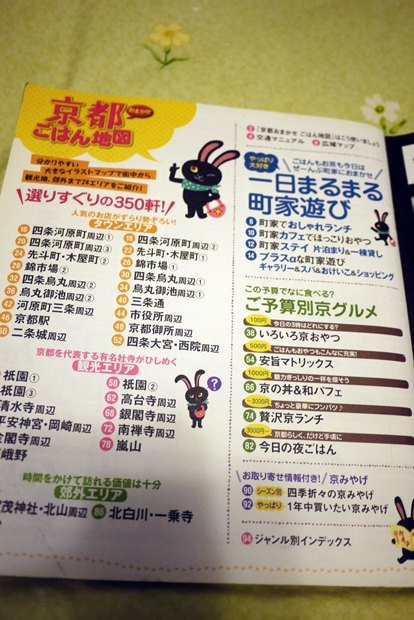 京都
おまかせ
ごはん地図
分かりやすい
大きなイラストマップで街中から
観光地、郊外まで24エリアをご紹介!
選りすぐりの350軒!
人気のお店がずらり勢ぞろい!
タウンエリア
16 四条河原町周辺①
18 四条河原町周辺②
20 四条河原町周辺③
22 先斗町・木屋町①
24 先斗町・木屋町②
26 錦市場①
28 錦市場②
30 四条烏丸周辺①
32 四条烏丸周辺②
34 烏丸御池周辺①
36 烏丸御池周辺②
40 三条通
42 河原町三条周辺
44 市役所周辺
46 京都駅
48 京都御所周辺
50 二条城周辺
52 四条大宮・西院周辺
京都を代表する有名社寺がひしめく
観光エリア
祇園①
58 祇園②
祇園③
62 高台寺周辺
清水寺周辺
68 銀閣寺周辺
平安神宮・岡崎周辺
72 南禅寺周辺
金閣寺周辺
78 嵐山
嵯峨野
時間をかけて訪れる価値は十分
郊外エリア
茂神社・北山周辺
86 北白川・一乗寺
2 「京都おまかせ ごはん地図」はこう使いましょう
4 交通マニュアル
6 広域マップ
やっぱり
大好き
ごはんもお茶も今日は
ぜーんぶ町家におまかせ
一日まるまる
町家遊び
8 町家でおしゃれランチ
10 町家カフェでほっこりおやつ
12 町家ステイ 片泊まり&一棟貸し
14 プラスαな町家遊び
ギャラリー&スパ&おけいこ&ショッピング
この予算でなに食べる?
ご予算別京グルメ
100円
今日の3時はどれにする?
38 いろいろ京おやつ
500円
ごはんもおやつもこんなに充実!
54 安旨マトリックス
1000円
魅力ぎっしりの一杯を探そう
66 京の丼&和パフェ
ちょっと豪華にフンパツ♪
74 贅沢京ランチ
3000円~
京都らしく、だけど手頃に
82 今日の夜ごはん
お取り寄せ情報付き! 京みやげ
90 シーズン別 四季折々の京みやげ
92 やっぱり 1年中買いたい京みやげ
94 ジャンル別インデックス